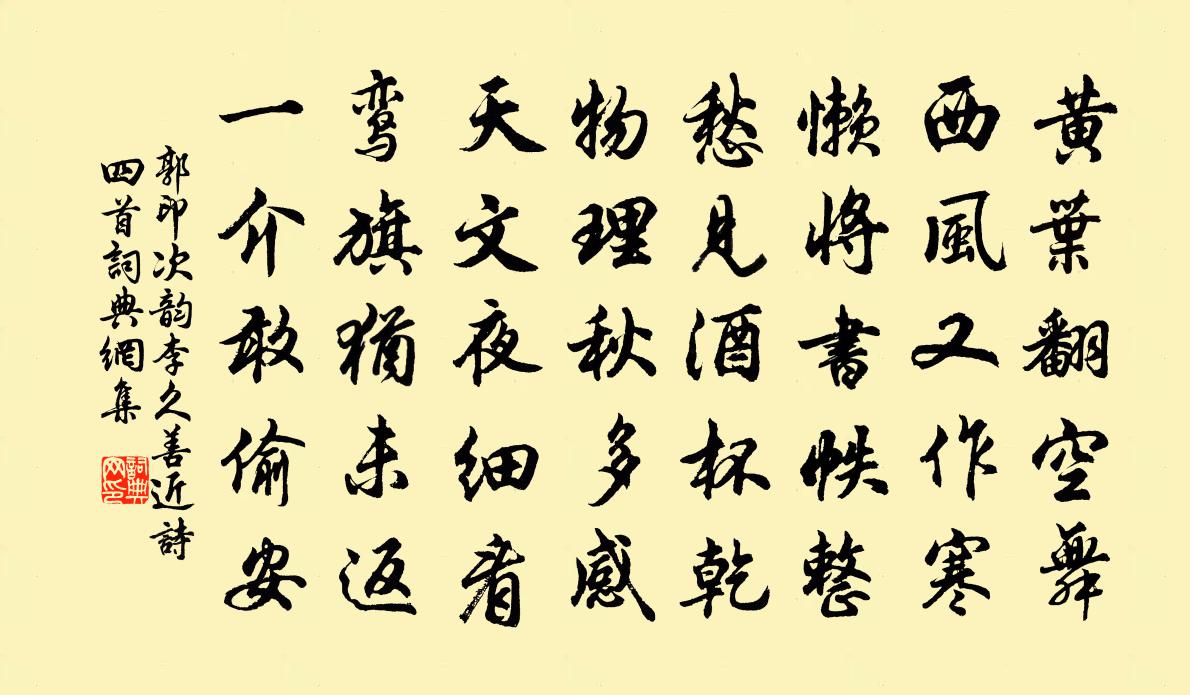 黄葉翻空舞
西風又作寒
懒將書帙整
愁見酒杯乾
物理秋多感
天文夜细看
鸾旗猶未返
一介敢偷安
郭印次韵李久善近詩
四首詞典網集
詞典
网印